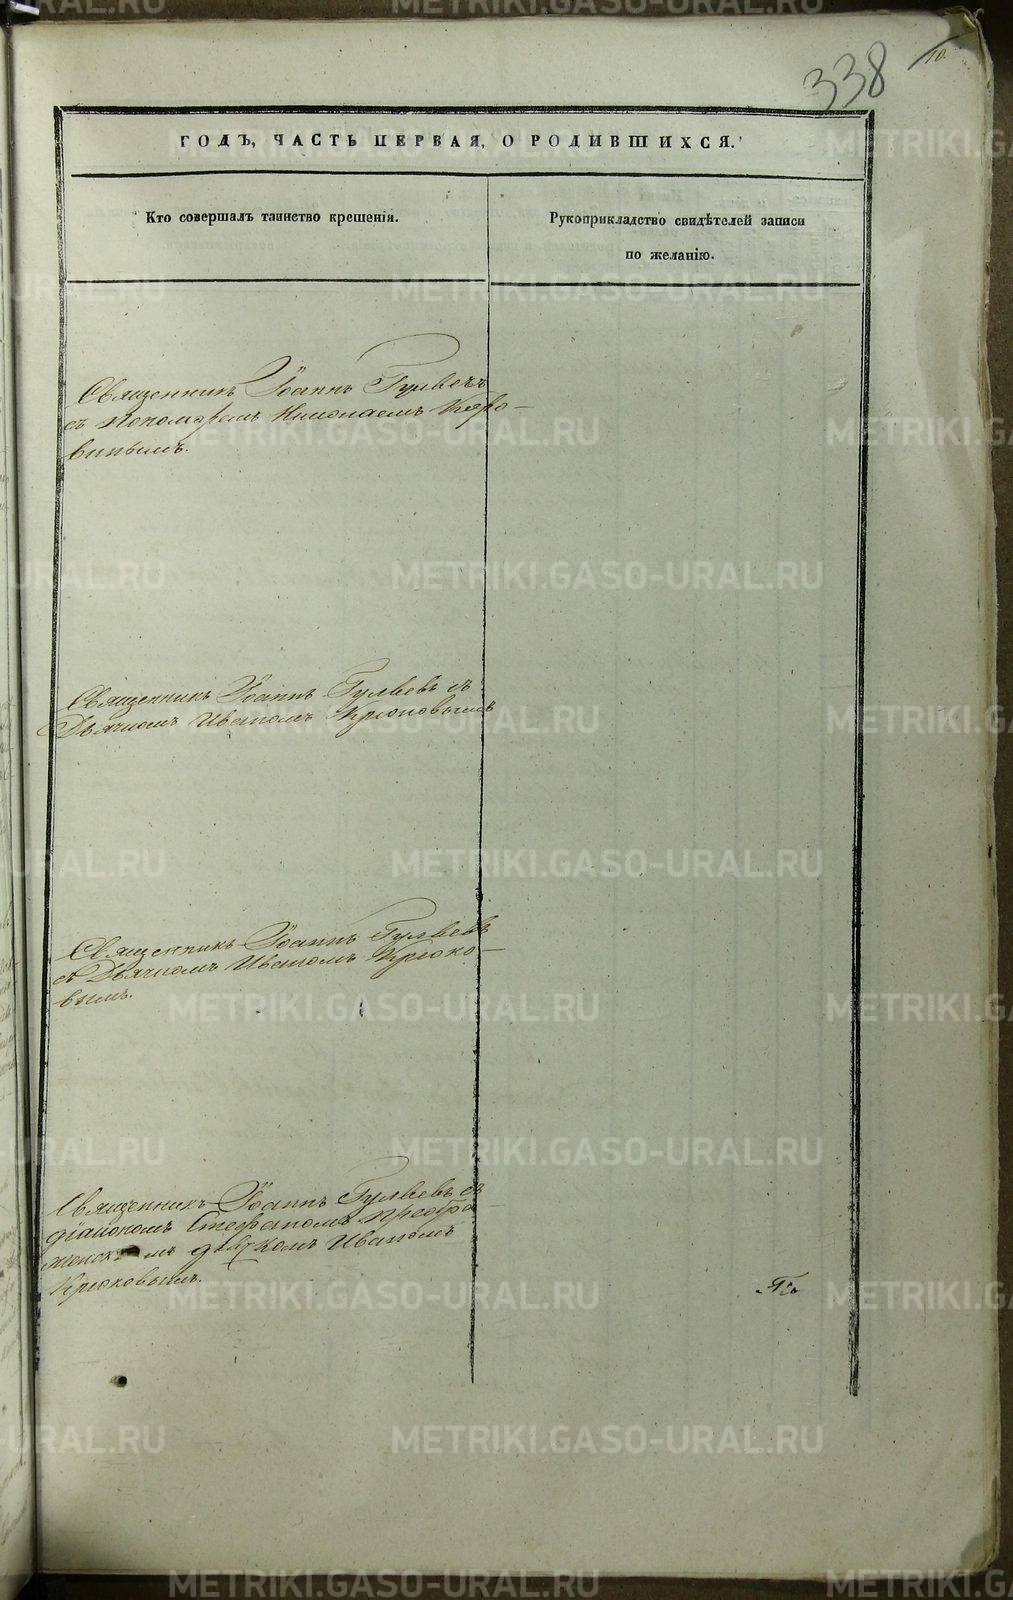 338
10.
ГОДЪ, ЧАСТЬ ПЕРВАЯ, О РОДИВШИХСЯ.
Кто совершалъ таинство крещенія.
Рукоприкладство свидѣтелей записи
по желанію.
Священникъ Іоаннъ Гуляевъ
съ Пономаремъ Николаемъ Коро-
винымъ.
Священникъ Іоаннъ Гуляевъ съ
Дьячкомъ Иваномъ Крюковымъ
Священникъ Іоаннъ Гуляевъ
съ Дьячкомъ Иваномъ Крюко-
вымъ.
Священникъ Іоаннъ Гуляевъ съ
діакономъ Стефаномъ
дьячкомъ Иваномъ
Крюковымъ.
METRIKI.GASO-URAL.RU